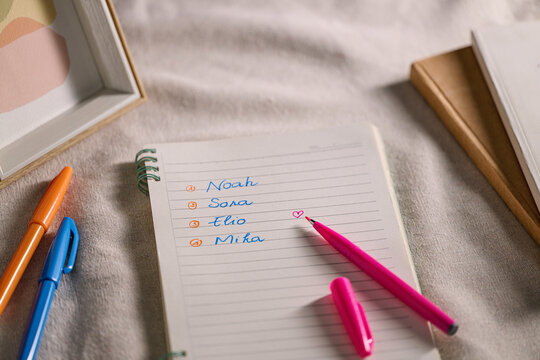 1 Noah
2 Sora
3 Elio
4 Mika